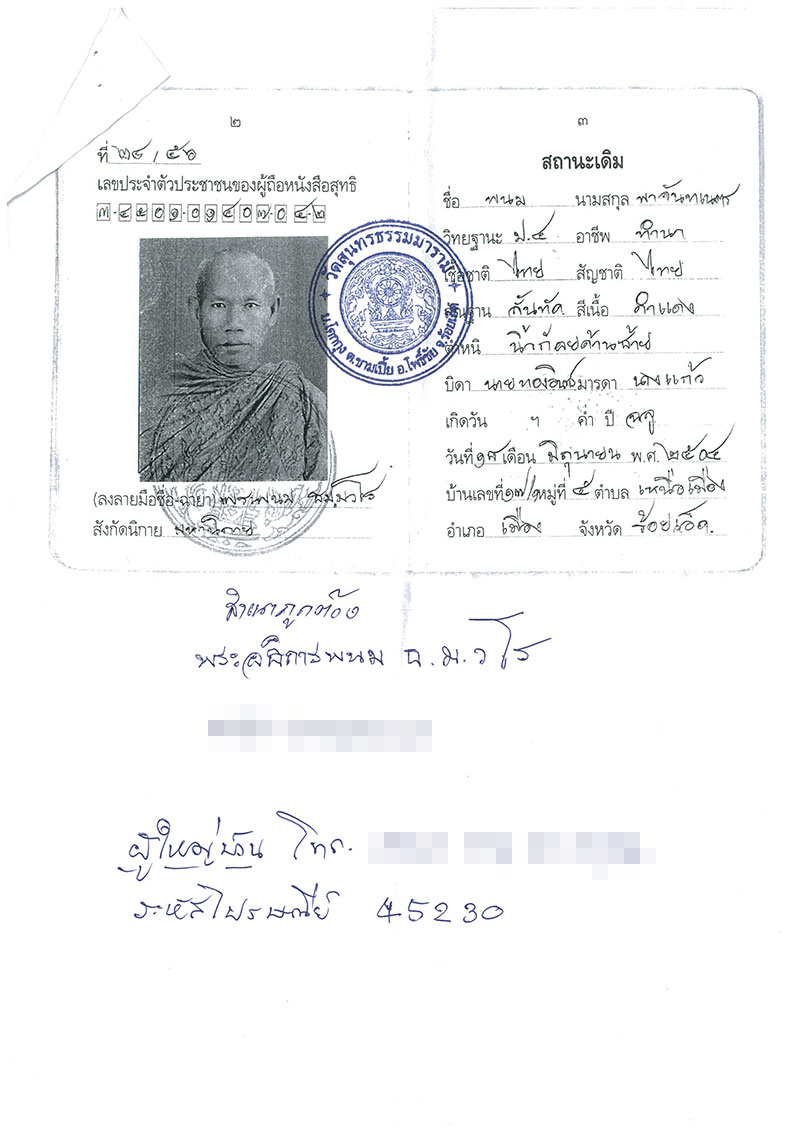 ๒
ที่ ๒๔ / ๕๖
เลขประจำตัวประชาชนของผู้ถือหนังสือสุทธิ
(ลงลายมือชื่อ-ฉายา) พระพนม
สังกัดนิกาย มหานิกาย
วัดสุนทรธรรมมาราม
บ.โคกกุง ต.ขามเปี้ย อ.โพธิ์ชัย จ.ร้อยเอ็ด
๓
สถานะเดิม
ชื่อ พนม นามสกุล
วิทยฐานะ ป.๔ อาชีพ ทำนา
เชื้อชาติ ไทย สัญชาติ ไทย
สัณฐาน สันทัด สีเนื้อ ดำแดง
ตำหนิ
บิดา มารดา นางแก้ว
เกิดวัน ฯ ค่ำ ปี ฉลู
วันที่ เดือน มิถุนายน พ.ศ. ๒๕๐๔
บ้านเลขที่ หมู่ที่ ๕ ตำบล เหนือเมือง
อำเภอ เมือง จังหวัด ร้อยเอ็ด.
สำเนาถูกต้อง
พระอธิการพนม
ผู้ใหญ่บ้าน โทร.
ระหัสไปรษณีย์ 45230